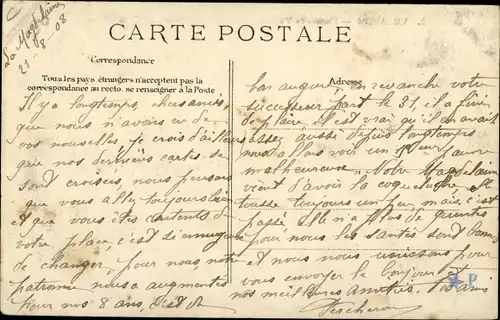 La Magdelaine
21-8-08
CARTE POSTALE
Correspondance
Tous les pays étrangers n'acceptent pas la
correspondance au recto. se renseigner à la Poste
Il y a longtemps, chers amis,
que nous n'avions eu de
vos nouvelles, je crois d'ailleurs
que nos dernières cartes se
sont croisées, nous pensons
que vous allez toujours bien
et que vous êtes contents de
votre place, c'est si ennuyeux
de changer, pour nous notre
patronne nous a augmentés
pour nos 8 ans, c'est de
Adresse
bon augure, en revanche votre
successeur part le 31, il a fini
de plaire il est vrai qu'il en avait
assez aussi depuis longtemps
nous allons voir un
malheureux. Notre Magdelaine
vient d'avoir la coqueluche, et
tousse toujours un peu, mais c'est
passé elle n'a plus de quintes
pour nous les santés sont bonnes
et nous nous unissons pour
vous envoyer le bonjour et
nos meilleures amitiés. Vos amis
P